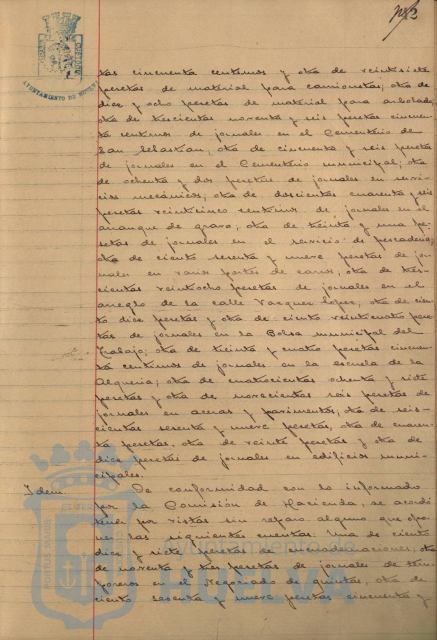 tas cincuenta centimos y otra de veintisiete
pesetas de material para camionetas; otra de
diez y ocho pesetas de material para arbolado;
otra de trescientas noventa y seis pesetas cincuen-
ta centimos de jornales en el Cementerio de
San Sebastian, otra de cincuenta y seis pesetas
de jornales en el Cementerio municipal; otra
de ochenta y dos pesetas de jornales en servi-
cios mecánicos; otra de doscientas cuarenta y seis
pesetas veinticinco centimos de jornales en el
arranque de grava, otra de treinta y una pe-
setas de jornales en el servicio de pescaderia;
otra de ciento sesenta y nueve pesetas de jor-
nales en varios portes de carros, otra de tres-
cientas veintiocho pesetas de jornales en el
arreglo de la calle Vazquez Lopez, otra de cien-
to diez pesetas y otra de ciento veinticuatro pese-
tas de jornales en la Bolsa municipal del
Trabajo; otra de treinta y cuatro pesetas cincuen-
ta centimos de jornales en la escuela de la
Alqueria; otra de cuatrocientas ochenta y siete
pesetas y otra de novecientas seis pesetas de
jornales en aceras y pavimentos, otra de seis-
cientas sesenta y nueve pesetas, otra de cuaren-
ta pesetas, otra de veinte pesetas y otra de
diez pesetas de jornales en edificios muni-
cipales.
Idem. De conformidad con lo informado
por la Comisión de Hacienda, se acordó
tener por vistas sin reparo alguno que opo-
ner las siguientes cuentas: Una de ciento
diez y siete pesetas de encuadernaciones; otra
de noventa y tres pesetas de jornales de tem-
poreros en el Negociado de quintas, otra de
ciento sesenta y nueve pesetas cincuenta y